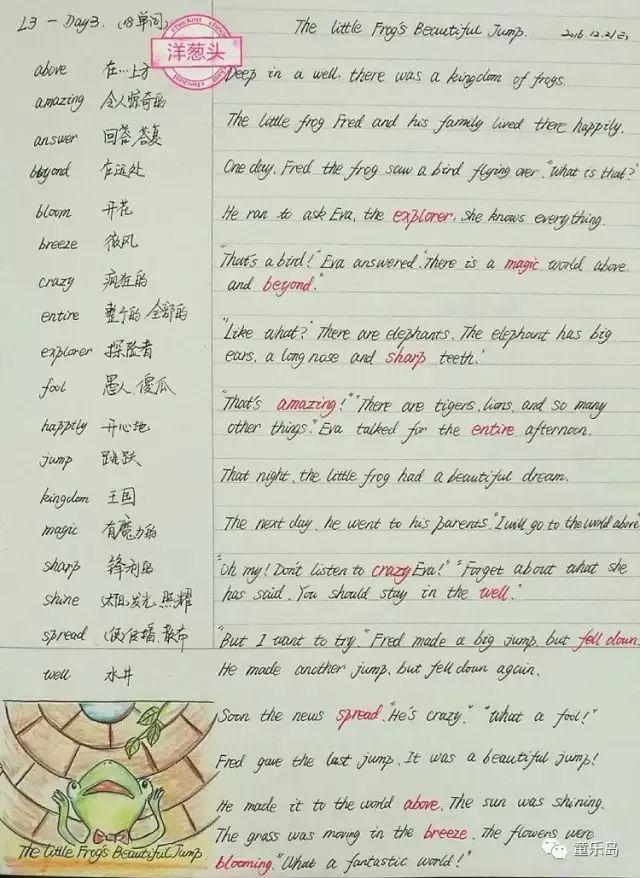 L3 - Day3. (18单词)
The little Frog's Beautiful Jump.
2016.12.21(三)
checked
洋葱头
checked
above 在…上方
amazing 令人惊奇的
answer 回答.答复
beyond 在远处
bloom 开花
breeze 微风
crazy 疯狂的
entire 整个的.全部的
explorer 探险者
fool 愚人.傻瓜
happily 开心地
jump 跳跃
kingdom 王国
magic 有魔力的
sharp 锋利的
shine 太阳发光.照耀
spread (使)传播.散布
well 水井
Deep in a well, there was a kingdom of frogs.
The little frog Fred and his family lived there happily.
One day, Fred the frog saw a bird flying over. "What is that?"
He ran to ask Eva, the explorer, she knows everything.
"That's a bird!" Eva answered. "There is a magic world above
and beyond."
"Like what?" There are elephants. The elephant has big
ears, a long nose and sharp teeth."
"That's amazing!" "There are tigers, lions, and so many
other things." Eva talked for the entire afternoon.
That night, the little frog had a beautiful dream.
The next day, he went to his parents. "I will go to the world above"
"Oh my! Don't listen to crazy Eva!" "Forget about what she
has said. You should stay in the well."
"But I want to try." Fred made a big jump, but fell down.
He made another jump, but fell down again.
Soon the news spread. "He's crazy." "What a fool!"
Fred gave the last jump. It was a beautiful jump!
He made it to the world above. The sun was shining.
The grass was moving in the breeze. The flowers were
blooming. "What a fantastic world!"
The little Frog's Beautiful Jump
童乐岛